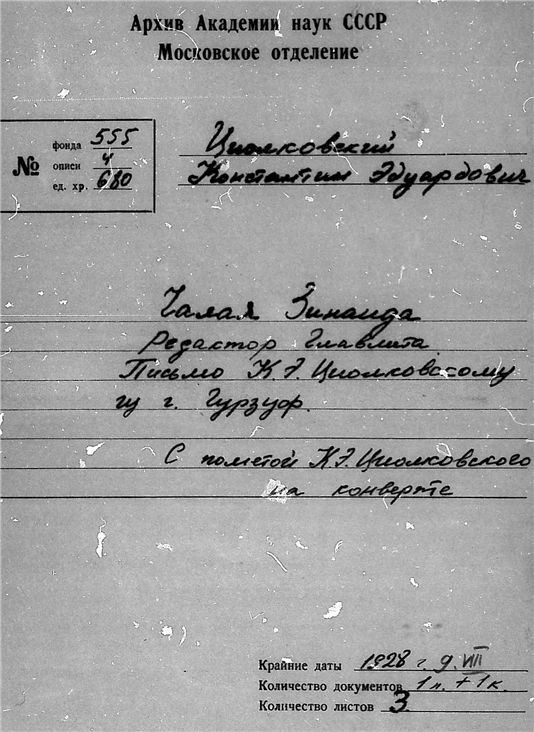 Архив Академии наук СССР
Московское отделение
№
фонда 555
описи 4
ед. хр. 680
Циолковский
Константин Эдуардович
Чалая Зинаида
Редактор Главлита
Письмо К.Э. Циолковскому
из г. Гурзуф.
С пометой К.Э. Циолковского
на конверте
Крайние даты 1928 г. 9. VIII
Количество документов 1 п. + 1 к.
Количество листов 3